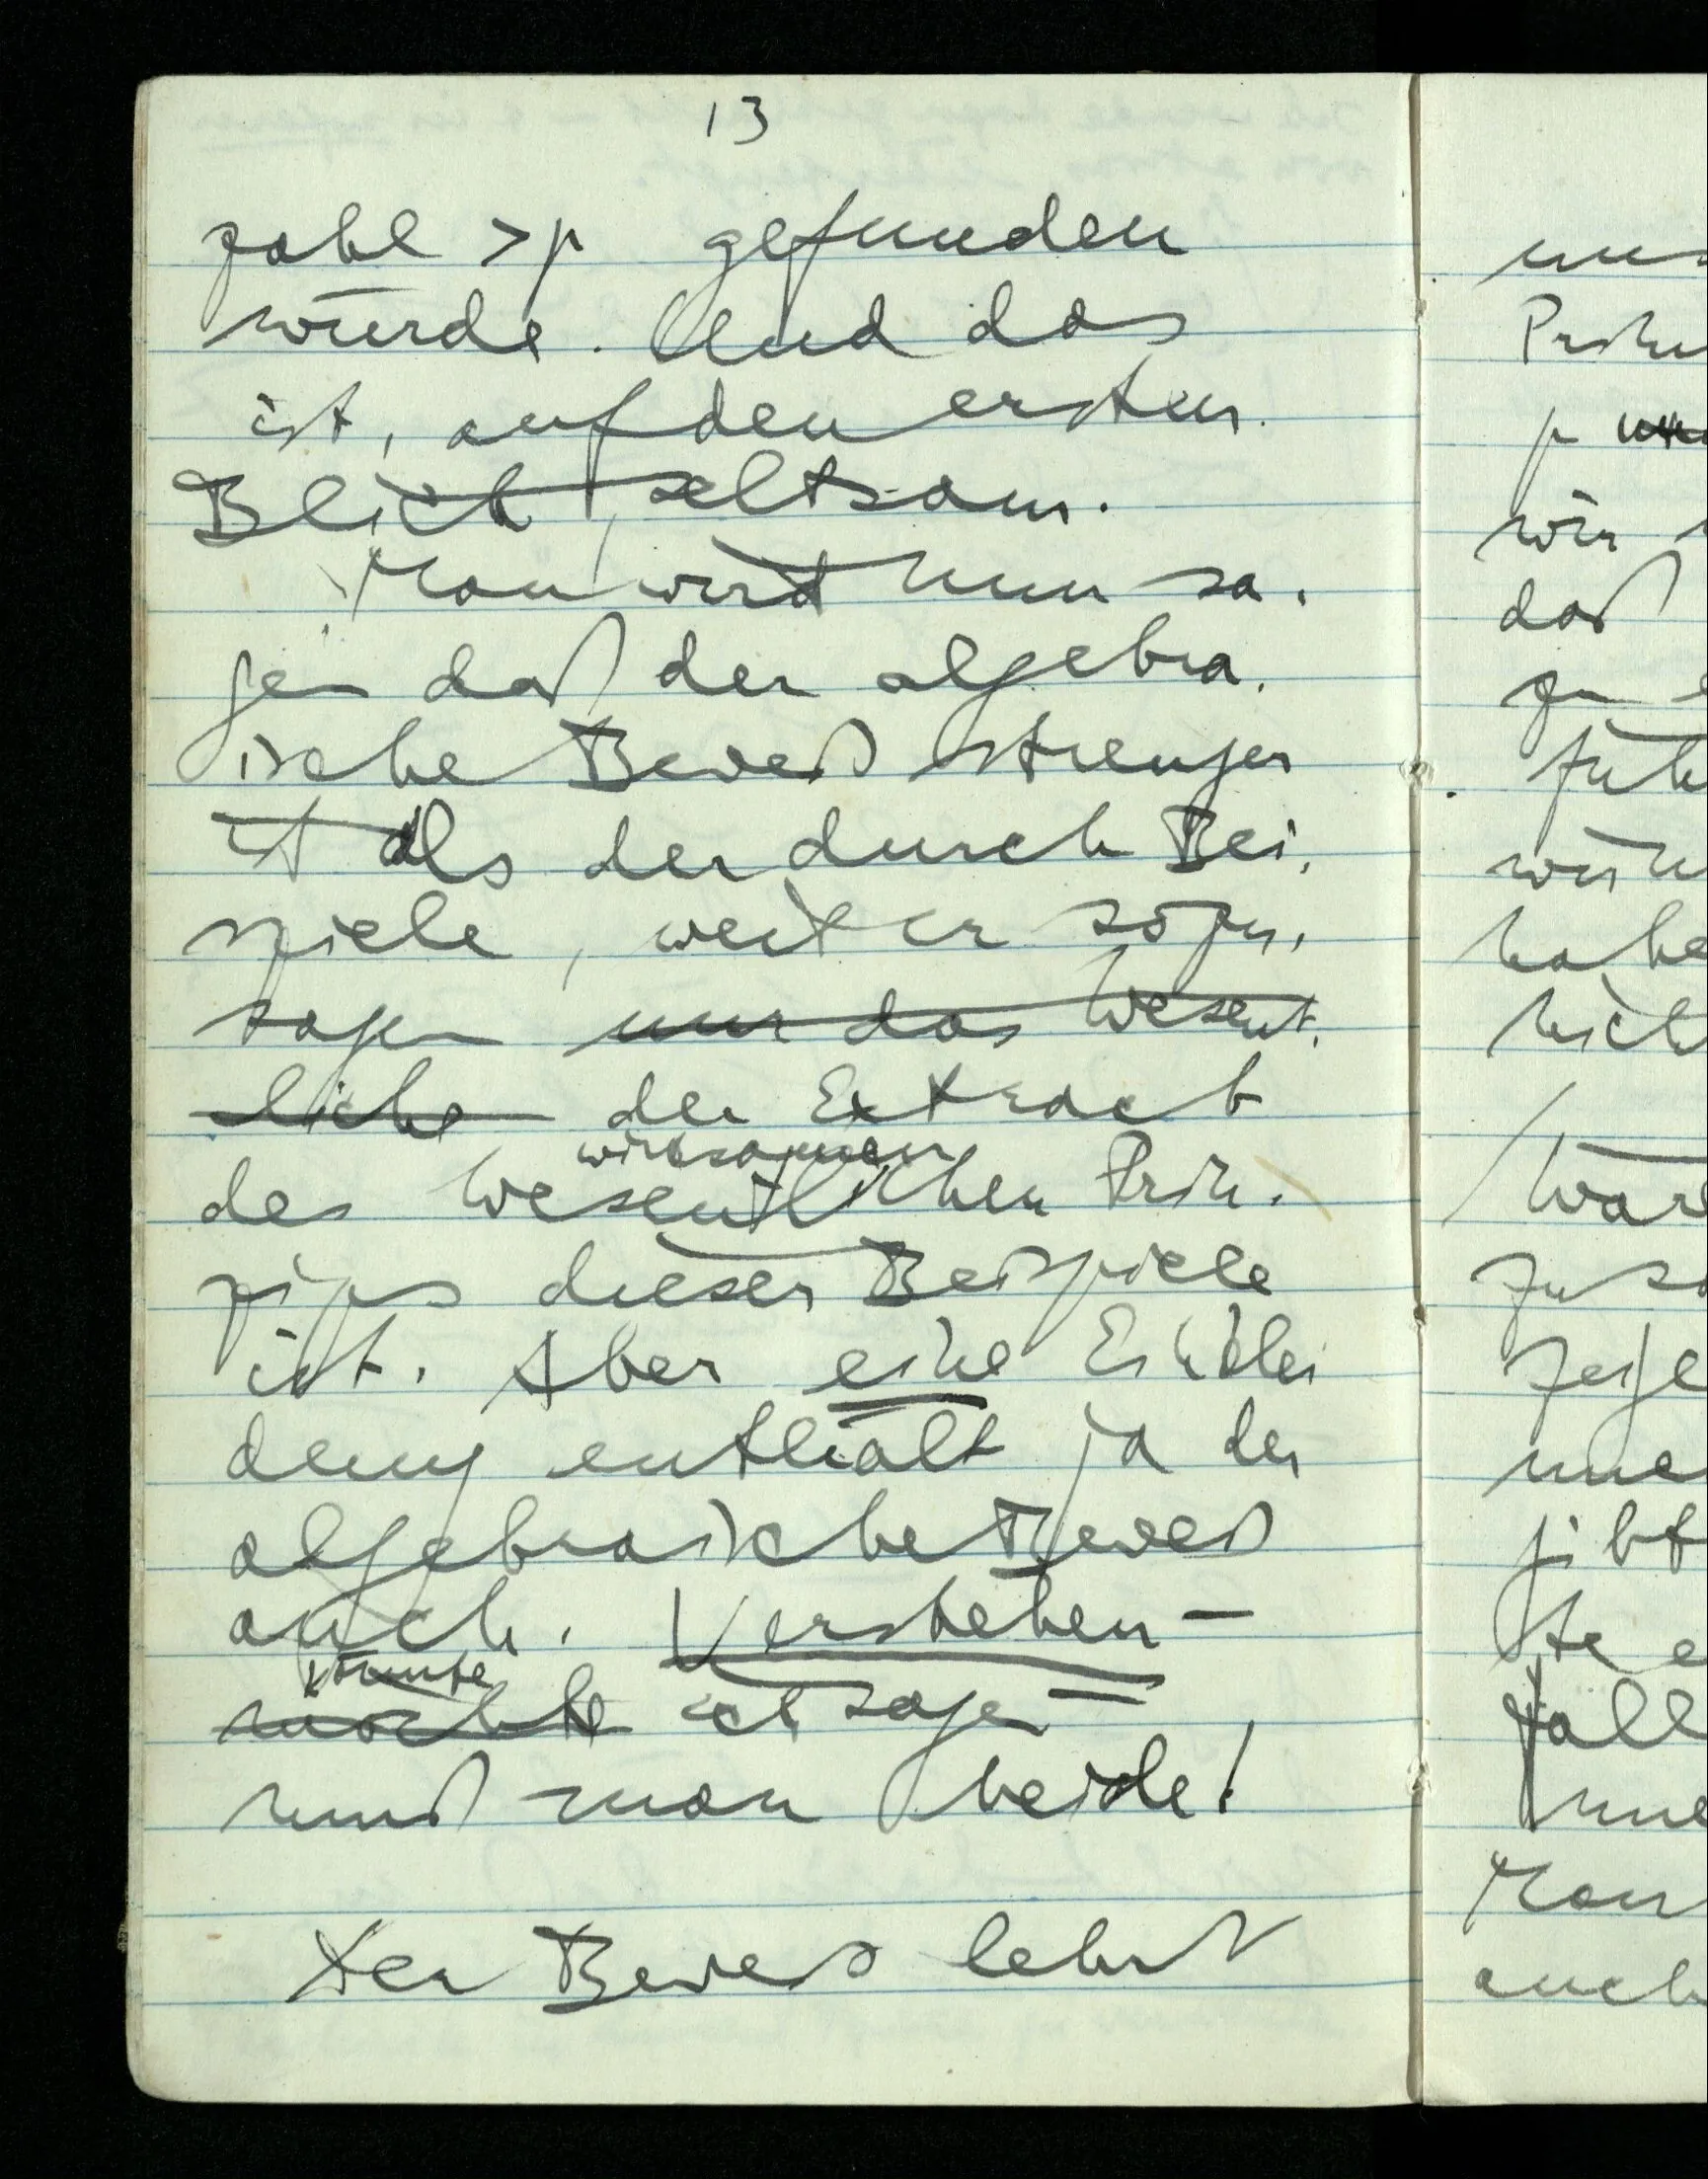 13
zahl > p gefunden
würde. Und das
ist, auf den ersten
Blick seltsam.
Man wird nun sa-
gen daß der algebra-
ische Beweis strenger
ist als der durch Bei-
spiele, weil er sozu-
sagen nur das Wesent-
liche der Extract
wirksamen
des wesentlichen Prin-
zips dieser Beispiele
ist. Aber eine Einklei
dung enthält ja der
algebraische Beweis
auch. Verstehen –
könnte
möchte ich sagen –
muß man beide!
Der Beweis lehrt
mus
p
wir
daß
zu
habe
nich
zu sa
zeige
gibt
te e
Man
auch